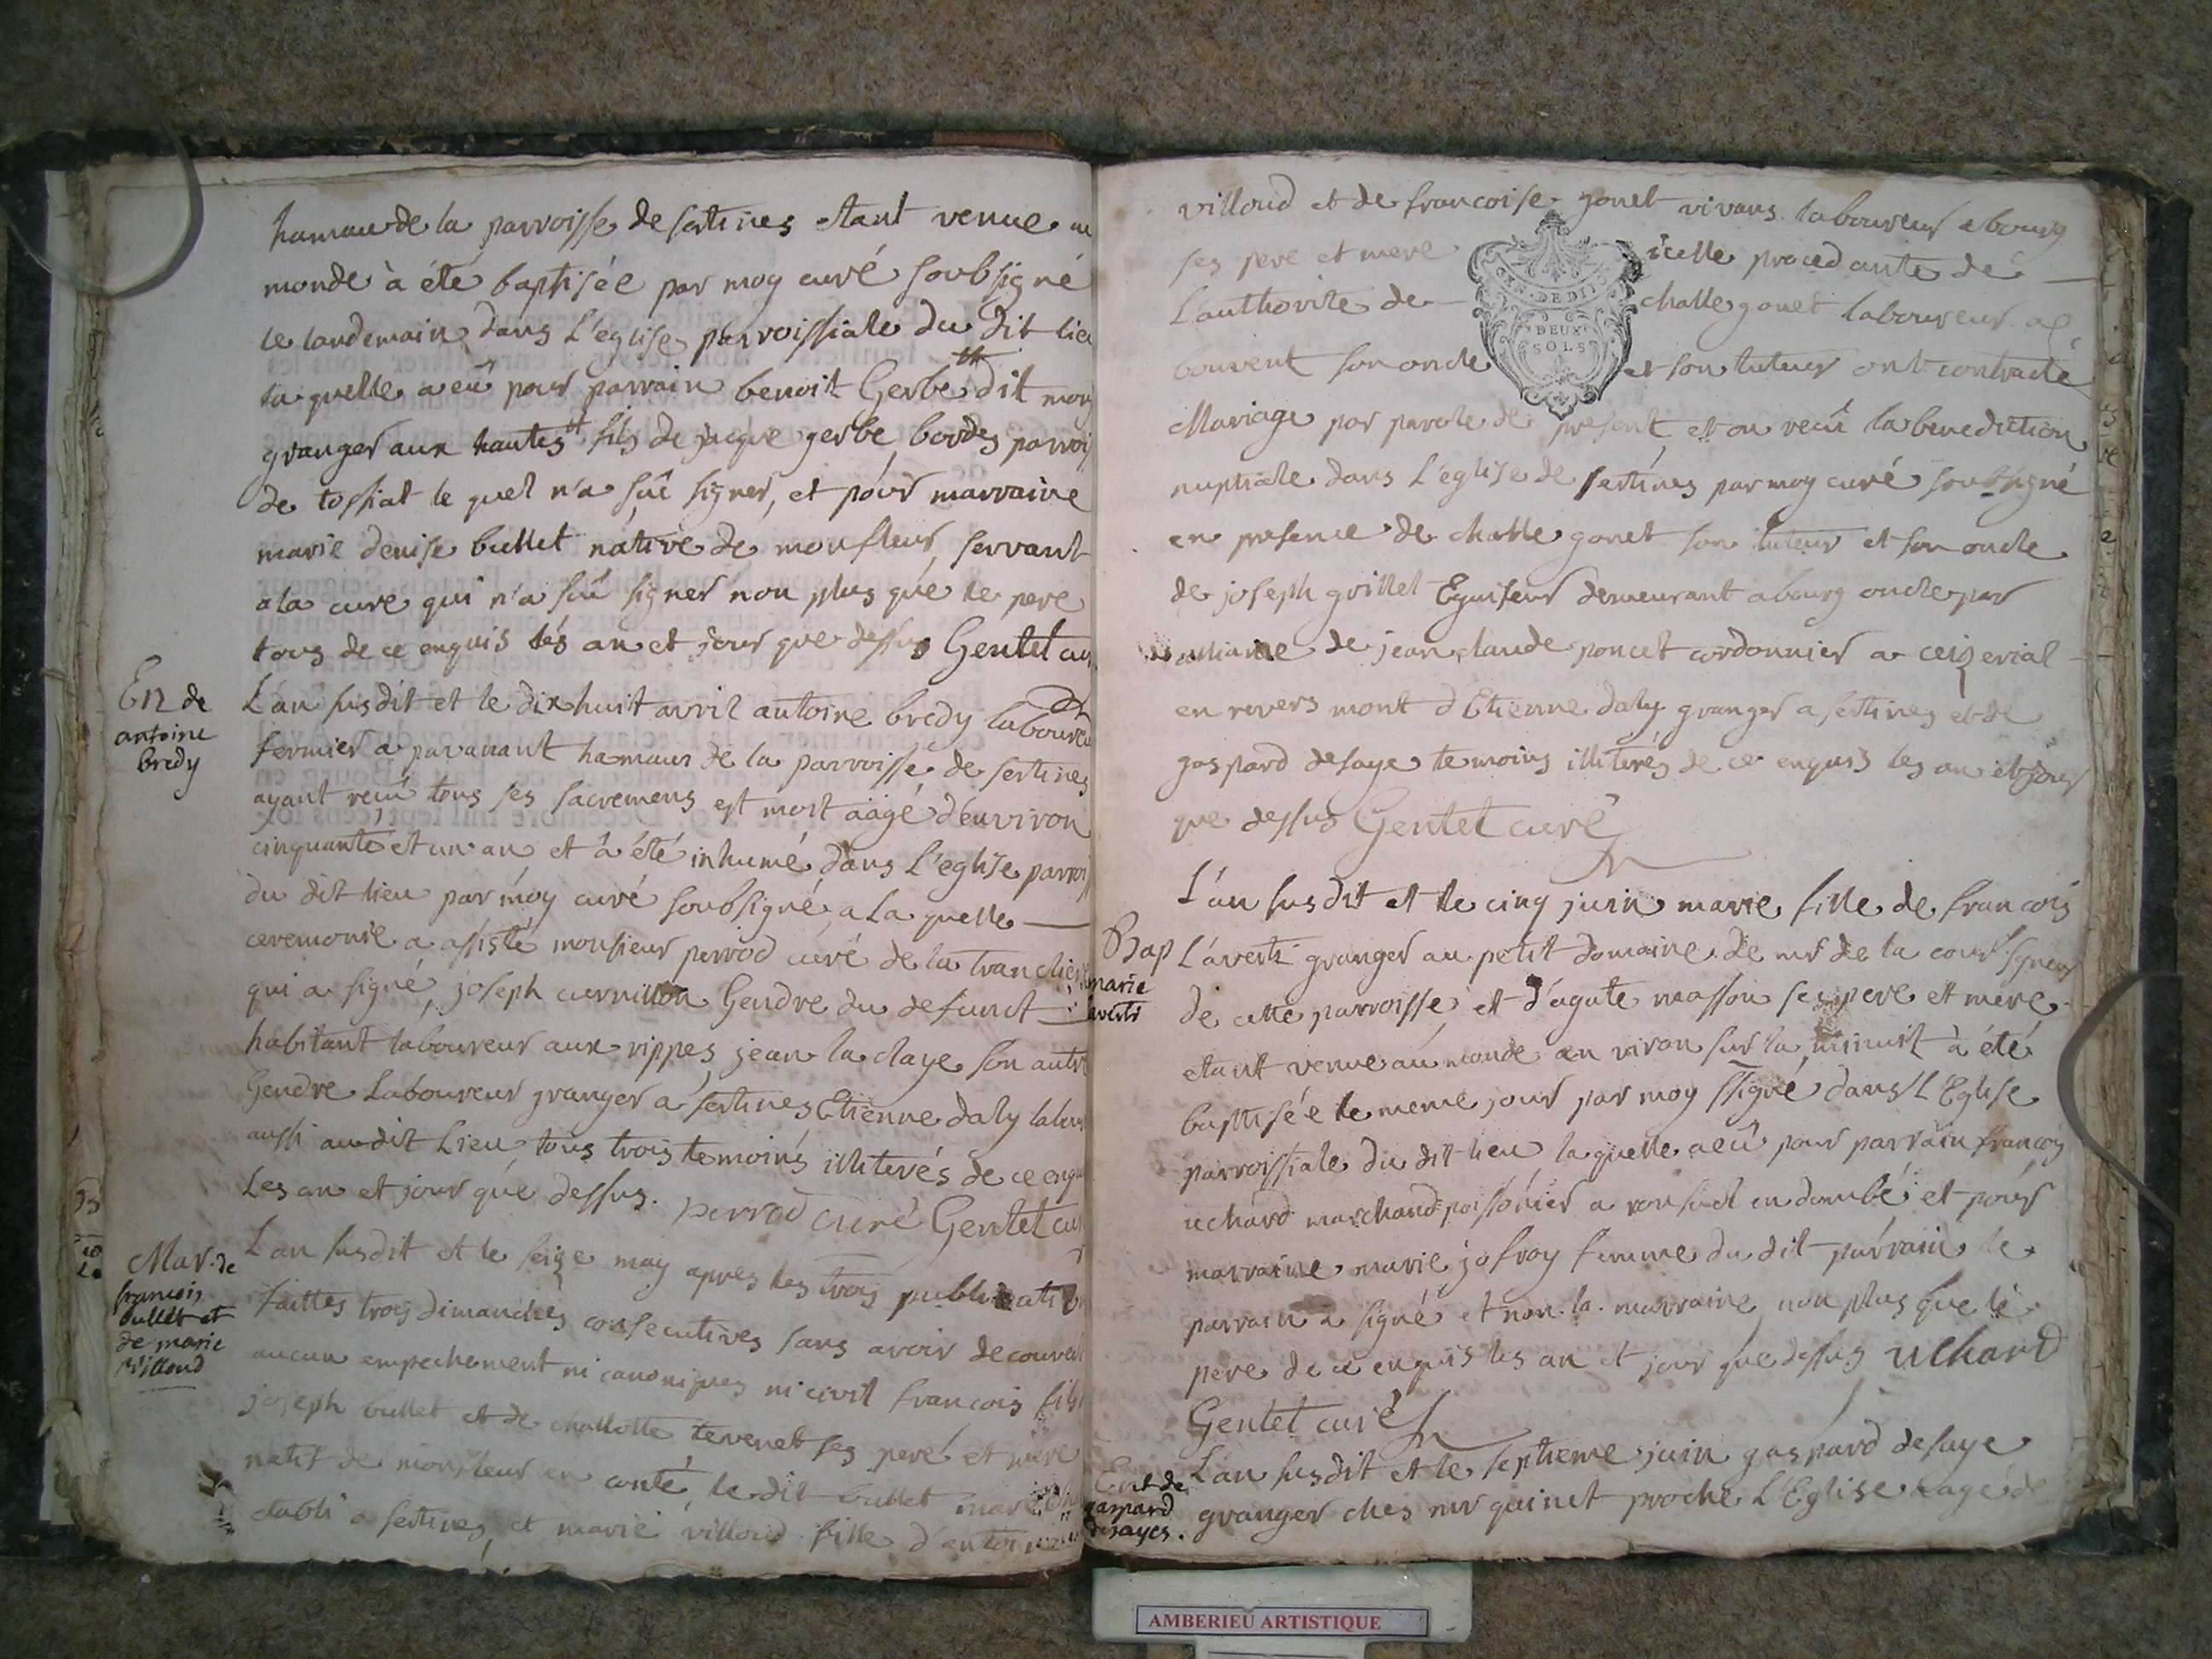 hamau de la parroisse de sertines etant venue au
monde à été baptisée par moy curé soubsigné
le landemain dans L'eglise parroissiale du dit lieu
la quelle a eû pour parrain benoit Gerbe dit mon
granger aux hautes fils de jaque gerbe bordes parrois
de tossiat le quel n'a sçû signer, et pour marraine
marie denise bullet native de monfleur, servant
a la cure qui n'a sçû signer non plus que le pere
tous de ce enquis les an et jour que dessus Gentet cu
En de
antoine
bredy
L'an susdit et le dix huit avril antoine bredy laboureu
fermier a paranant hamaux de la parroisse de sertines
ayant reçû tous ses sacremens est mort aâgé d'environ
cinquante et un an et à été inhumé dans L'eglise parrois
du dit lieu par moy curé soubsigné, a la quelle
ceremonie a assisté monsieur perrod curé de la tranclier
qui a signé, joseph curnillon Gendre du defunct
habitant laboureur aux rippes, jean la claye son autre
Gendre Laboureur granger a sertines, Etienne daly labour
aussi au dit Lieu tous trois temoins illiterés de ce enqu
Les an et jour que dessus. perrod curé Gentet cur
Mar. de
francois
bullet et
de marie
villoud
L'an susdit et le seize may apres les trois publication
faittes trois dimanches consecutives sans avoir decouvert
aucun empechement ni canoniques ni civil francois fils
joseph bullet et de challotte tevenet ses peré et mere
natif de monfleur en conté, le dit bullet mare
etabli a sertines, et marie villoud fille d'antoine
villoud et de francoise gonet vivans laboureur a bourg
ses pere et mere icelle procedante de
L'authorite de challe gonet laboureur a
bouvent son oncle et son tuteur ont contracté
GEN. DE DIJ
DEUX
SOLS
Mariage par parole de present et on reçû la benediction
nuptiale dans L'eglise de sertines par moy curé soubsigné
en presence de challe gonet son tuteur et son oncle
de joseph grillet Eguiseur demeurant a bourg oncle par
alliance de jean claude poncet cordonnier a ceizerial
en revers mont d'Etienne daly granger a sertines et de
gaspard desaye temoins illiterés de ce enquis les an et jour
que dessus Gentet curé
Bap
marie
laverti
L'an susdit et le cinq juin marie fille de francois
L'averti granger au petit domaine de mr de la cour sgneur
de cette parroisse et d'agate masson ses pere et mere
etant venue au monde en viron sur la minuit à été
baptisée le meme jour par moy ssigné dans L'Eglise
parroissiale du dit lieu la quelle a eû pour parrain francois
uchard marchand poissonier a ronsuel en dombé et pour
marraine marie jofroy femme du dit parrain le
parrain a signé et non la marraine non plus que le
pere de ce enquis les an et jour que dessus uchard
Gentet curé
Ent de
gaspard
desayes.
L'an susdit et le septieme juin gaspard desaye
granger ches mr quinet proche L'Eglise aagé de
AMBERIEU ARTISTIQUE